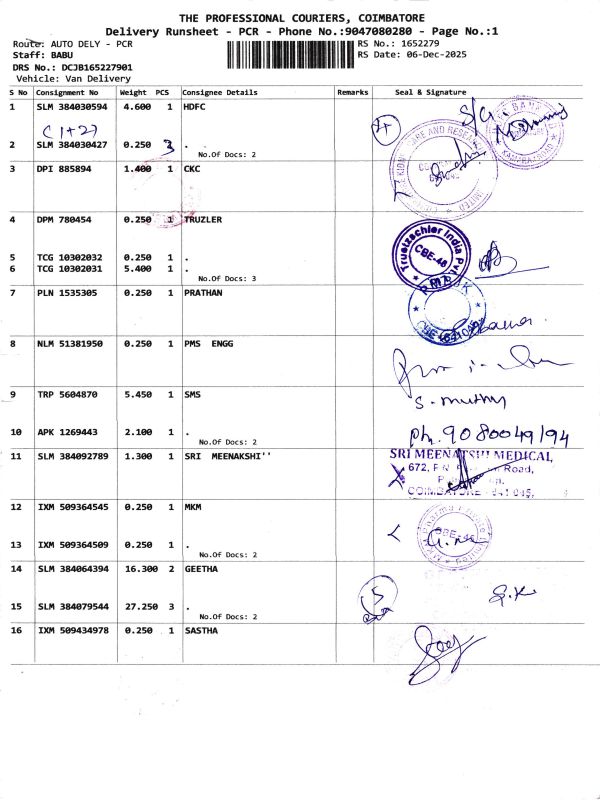 THE PROFESSIONAL COURIERS, COIMBATORE
Delivery Runsheet - PCR - Phone No.:9047080280 - Page No.:1
Route: AUTO DELY - PCR
RS No.: 1652279
Staff: BABU
RS Date: 06-Dec-2025
DRS No.: DCJB165227901
Vehicle: Van Delivery
S No Consignment No Weight PCS Consignee Details Remarks Seal & Signature
1 SLM 384030594 4.600 1 HDFC
(1+2)
2 SLM 384030427 0.250 3 .
No.Of Docs: 2
3 DPI 885894 1.400 1 CKC
4 DPM 780454 0.250 1 TRUZLER
Truetzschler India Pvt.
CBE-48
5 TCG 10302032 0.250 1 .
6 TCG 10302031 5.400 1 .
No.Of Docs: 3
7 PLN 1535305 0.250 1 PRATHAN
8 NLM 51381950 0.250 1 PMS ENGG
9 TRP 5604870 5.450 1 SMS
S-muthy
10 APK 1269443 2.100 1 .
No.Of Docs: 2
ph. 9080049194
11 SLM 384092789 1.300 1 SRI MEENAKSHI''
SRI MEENATSHI MEDICAL,
672, Road,
COIMBATORE - 641 045,
12 IXM 509364545 0.250 1 MKM
13 IXM 509364509 0.250 1 .
No.Of Docs: 2
14 SLM 384064394 16.300 2 GEETHA
5
G.K
15 SLM 384079544 27.250 3 .
No.Of Docs: 2
16 IXM 509434978 0.250 1 SASTHA